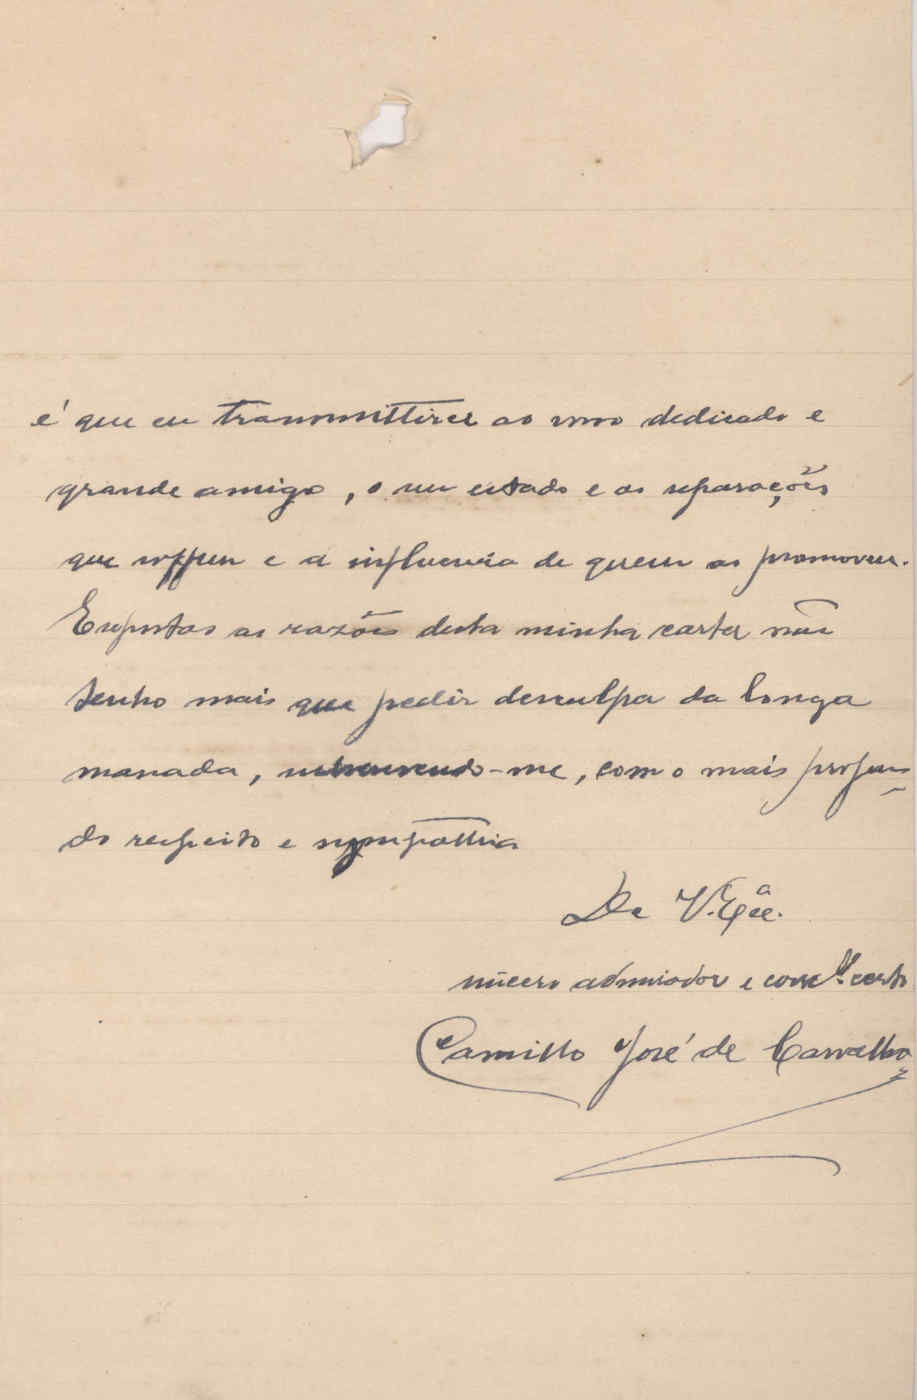 é que eu transmittirei ao vosso dedicado e
grande amigo, o seu estado e as separações
que soffreu e a influencia de quem as promoveu.
Expostas as razões desta minha carta não
tenho mais que pedir desculpa da longa
massada, subscrevendo-me, com o mais profun-
do respeito e sympathia
De V. Exª.
sincero admirador e certo
Camillo José de Carvalho